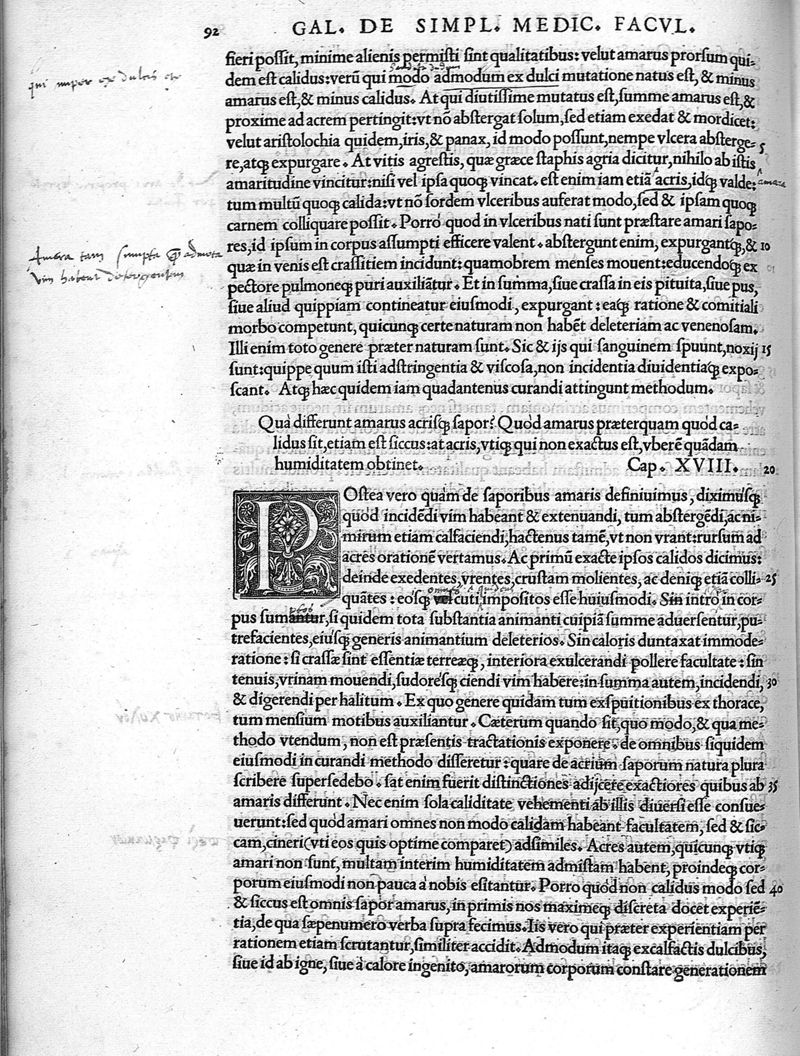 92 GAL. DE SIMPL. MEDIC. FACVL.
fieri possit, minime alienis permisti sint qualitatibus: velut amarus prorsum qui-
dem est calidus: verũ qui modo admodum ex dulci mutatione natus est, & minus
amarus est, & minus calidus. At qui diutissime mutatus est, summe amarus est, &
proxime ad acrem pertingit: vt nõ abstergat solum, sed etiam exedat & mordicet:
velut aristolochia quidem, iris, & panax, id modo possunt, nempe vlcera absterge-
5
re, atq; expurgare. At vitis agrestis, quæ græce staphis agria dicitur, nihilo ab istis
amaritudine vincitur: nisi vel ipsa quoq; vincat. est enim iam etiã acris, idq; valde:
tum multũ quoq; calida: vt nõ sordem vlceribus auferat modo, sed & ipsam quoq;
carnem colliquare possit. Porro quod in vlceribus nati sunt præstare amari sapo-
res, id ipsum in corpus assumpti efficere valent. abstergunt enim, expurgantq;, & 10
quæ in venis est crassitiem incidunt: quamobrem menses mouent: educendoq; ex
pectore pulmoneq; puri auxiliãtur. Et in summa, siue crassa in eis pituita, siue pus,
siue aliud quippiam contineatur eiusmodi, expurgant: eaq; ratione & comitiali
morbo competunt, quicunq; certe naturam non habẽt deleteriam ac venenosam.
Illi enim toto genere præter naturam sunt. Sic & ijs qui sanguinem spuunt, noxij 15
sunt: quippe quum isti adstringentia & viscosa, non incidentia diuidentiaq; expo-
scant. Atq; hæc quidem iam quadantenus curandi attingunt methodum.
Qua differunt amarus acrisq; sapor? Quod amarus præterquam quod ca-
lidus sit, etiam est siccus: at acris, vtiq; qui non exactus est, vberẽ quãdam
humiditatem obtinet. Cap. XVIII. 20
POstea vero quam de saporibus amaris definiuimus, diximusq;
quod incidẽdi vim habeant & extenuandi, tum abstergẽdi, ac ni-
mirum etiam calfaciendi, hactenus tamẽ, vt non vrant: rursum ad
acres orationẽ vertamus. Ac primũ exacte ipsos calidos dicimus:
deinde exedentes, vrentes, crustam molientes, ac deniq; etiã colli- 25
quãtes: eosq; cuti impositos esse huiusmodi. Sin intro in cor-
pus sumantur, si quidem tota substantia animanti cuipiã summe aduersentur, pu-
trefacientes, eiusq; generis animantium deleterios. Sin caloris duntaxat immode-
ratione: si crassæ sint essentiæ terreæq;, interiora exulcerandi pollere facultate: sin
tenuis, vrinam mouendi, sudoresq; ciendi vim habere: in summa autem, incidendi, 30
& digerendi per halitum. Ex quo genere quidam tum exspuitionibus ex thorace,
tum mensium motibus auxiliantur. Cæterum quando sit, quo modo, & qua me-
thodo vtendum, non est præsentis tractationis exponere. de omnibus siquidem
eiusmodi in curandi methodo disseretur: quare de acrium saporum natura plura
scribere supersedebo. sat enim fuerit distinctiones adijcere exactiores quibus ab 35
amaris differunt. Nec enim sola caliditate vehementi ab illis diuersi esse consue-
uerunt: sed quod amari omnes non modo calidam habeant facultatem, sed & sic-
cam, cineri (vti eos quis optime comparet) adsimiles. Acres autem, quicunq; vtiq;
amari non sunt, multam interim humiditatem admistam habent, proindeq; cor-
porum eiusmodi non pauca à nobis esitantur. Porro quod non calidus modo sed 40
& siccus est omnis sapor amarus, in primis nos maximeq; discreta docet experiẽ-
tia, de qua sæpenumero verba supra fecimus. Iis vero qui præter experientiam per
rationem etiam scrutantur, similiter accidit. Admodum itaq; excalfactis dulcibus,
siue id ab igne, siue à calore ingenito, amarorum corporum constare generationem